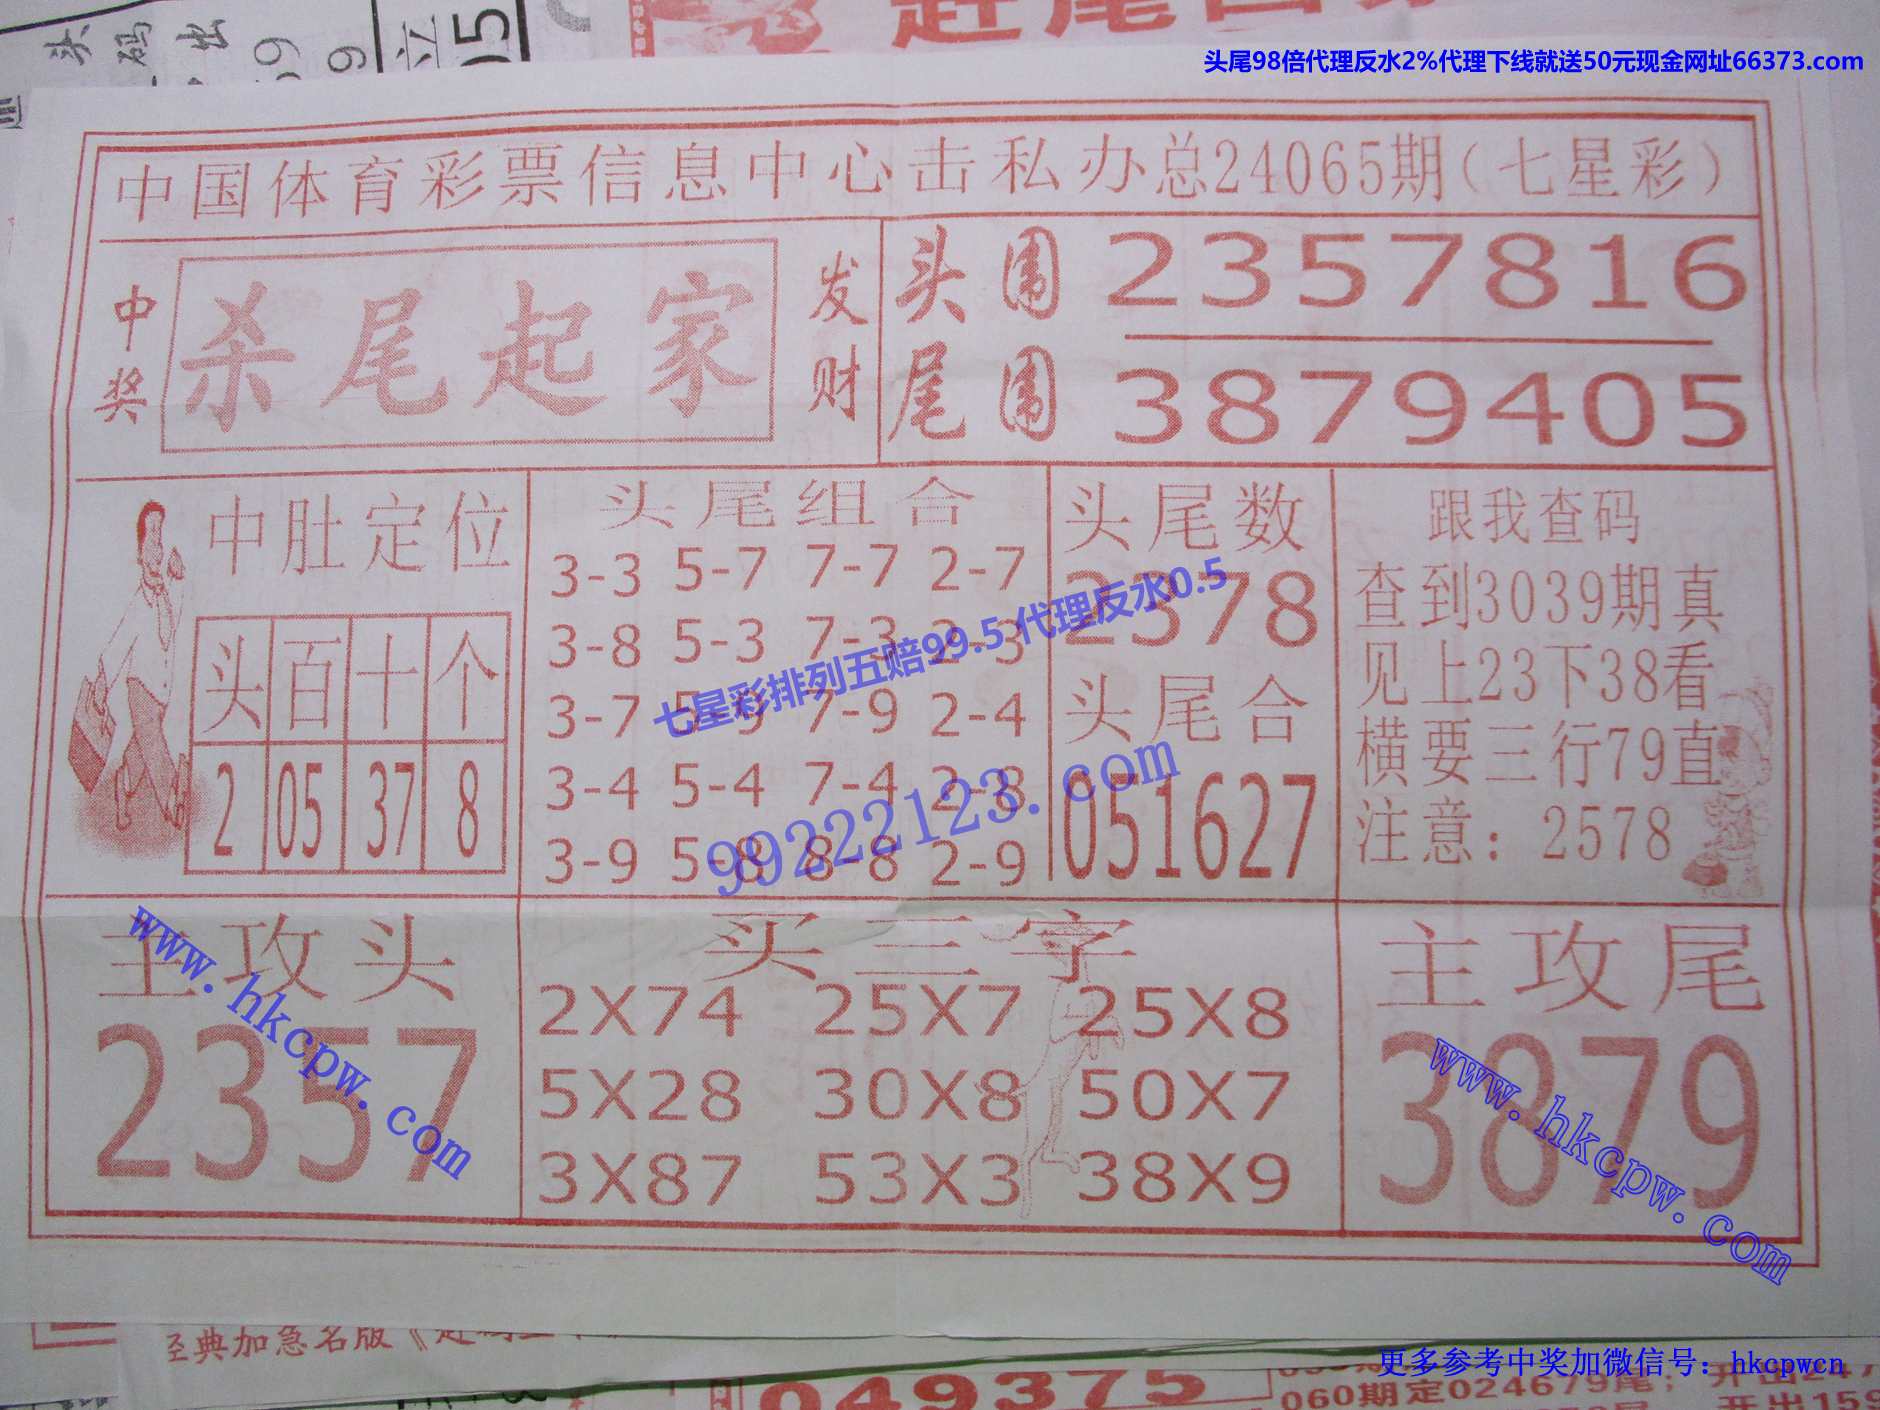 头尾98倍代理反水2%代理下线就送50元现金网址66373.com
头码出
69 9
立
05
中国体育彩票信息中心击私办总24065期（七星彩）
中奖
杀尾起家
发财
头围 2357816
尾围 3879405
中肚定位
头 百 十 个
2 05 37 8
头尾组合
3-3 5-7 7-7 2-7
3-8 5-3 7-3 2-3
3-7 5-9 7-9 2-4
3-4 5-4 7-4 2-8
3-9 5-8 8-8 2-9
头尾数
2378
头尾合
051627
跟我查码
查到3039期真
见上23下38看
横要三行79直
注意：2578
七星彩排列五赔99.5代理反水0.5
99222123.com
主攻头
2357
买三字
2X74 25X7 25X8
5X28 30X8 50X7
3X87 53X3 38X9
主攻尾
3879
www.hkcpw.com
www.hkcpw.com
经典加急名版《
049375
060期定024679尾；开出247
开出159
更多参考中奖加微信号：hkcpwcn